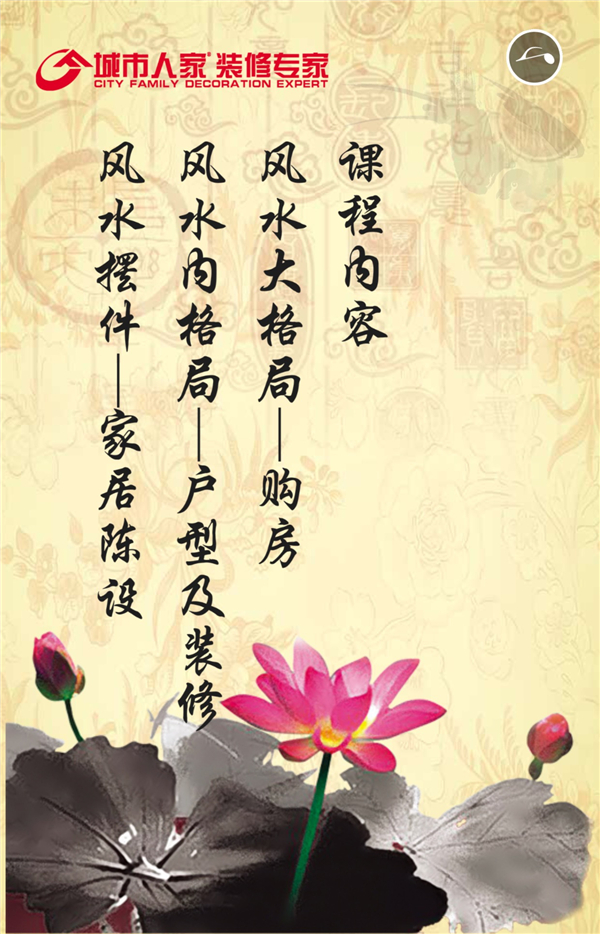 城市人家®装修专家
CITY FAMILY DECORATION EXPERT
课程内容
风水大格局—购房
风水内格局—户型及装修
风水摆件—家居陈设